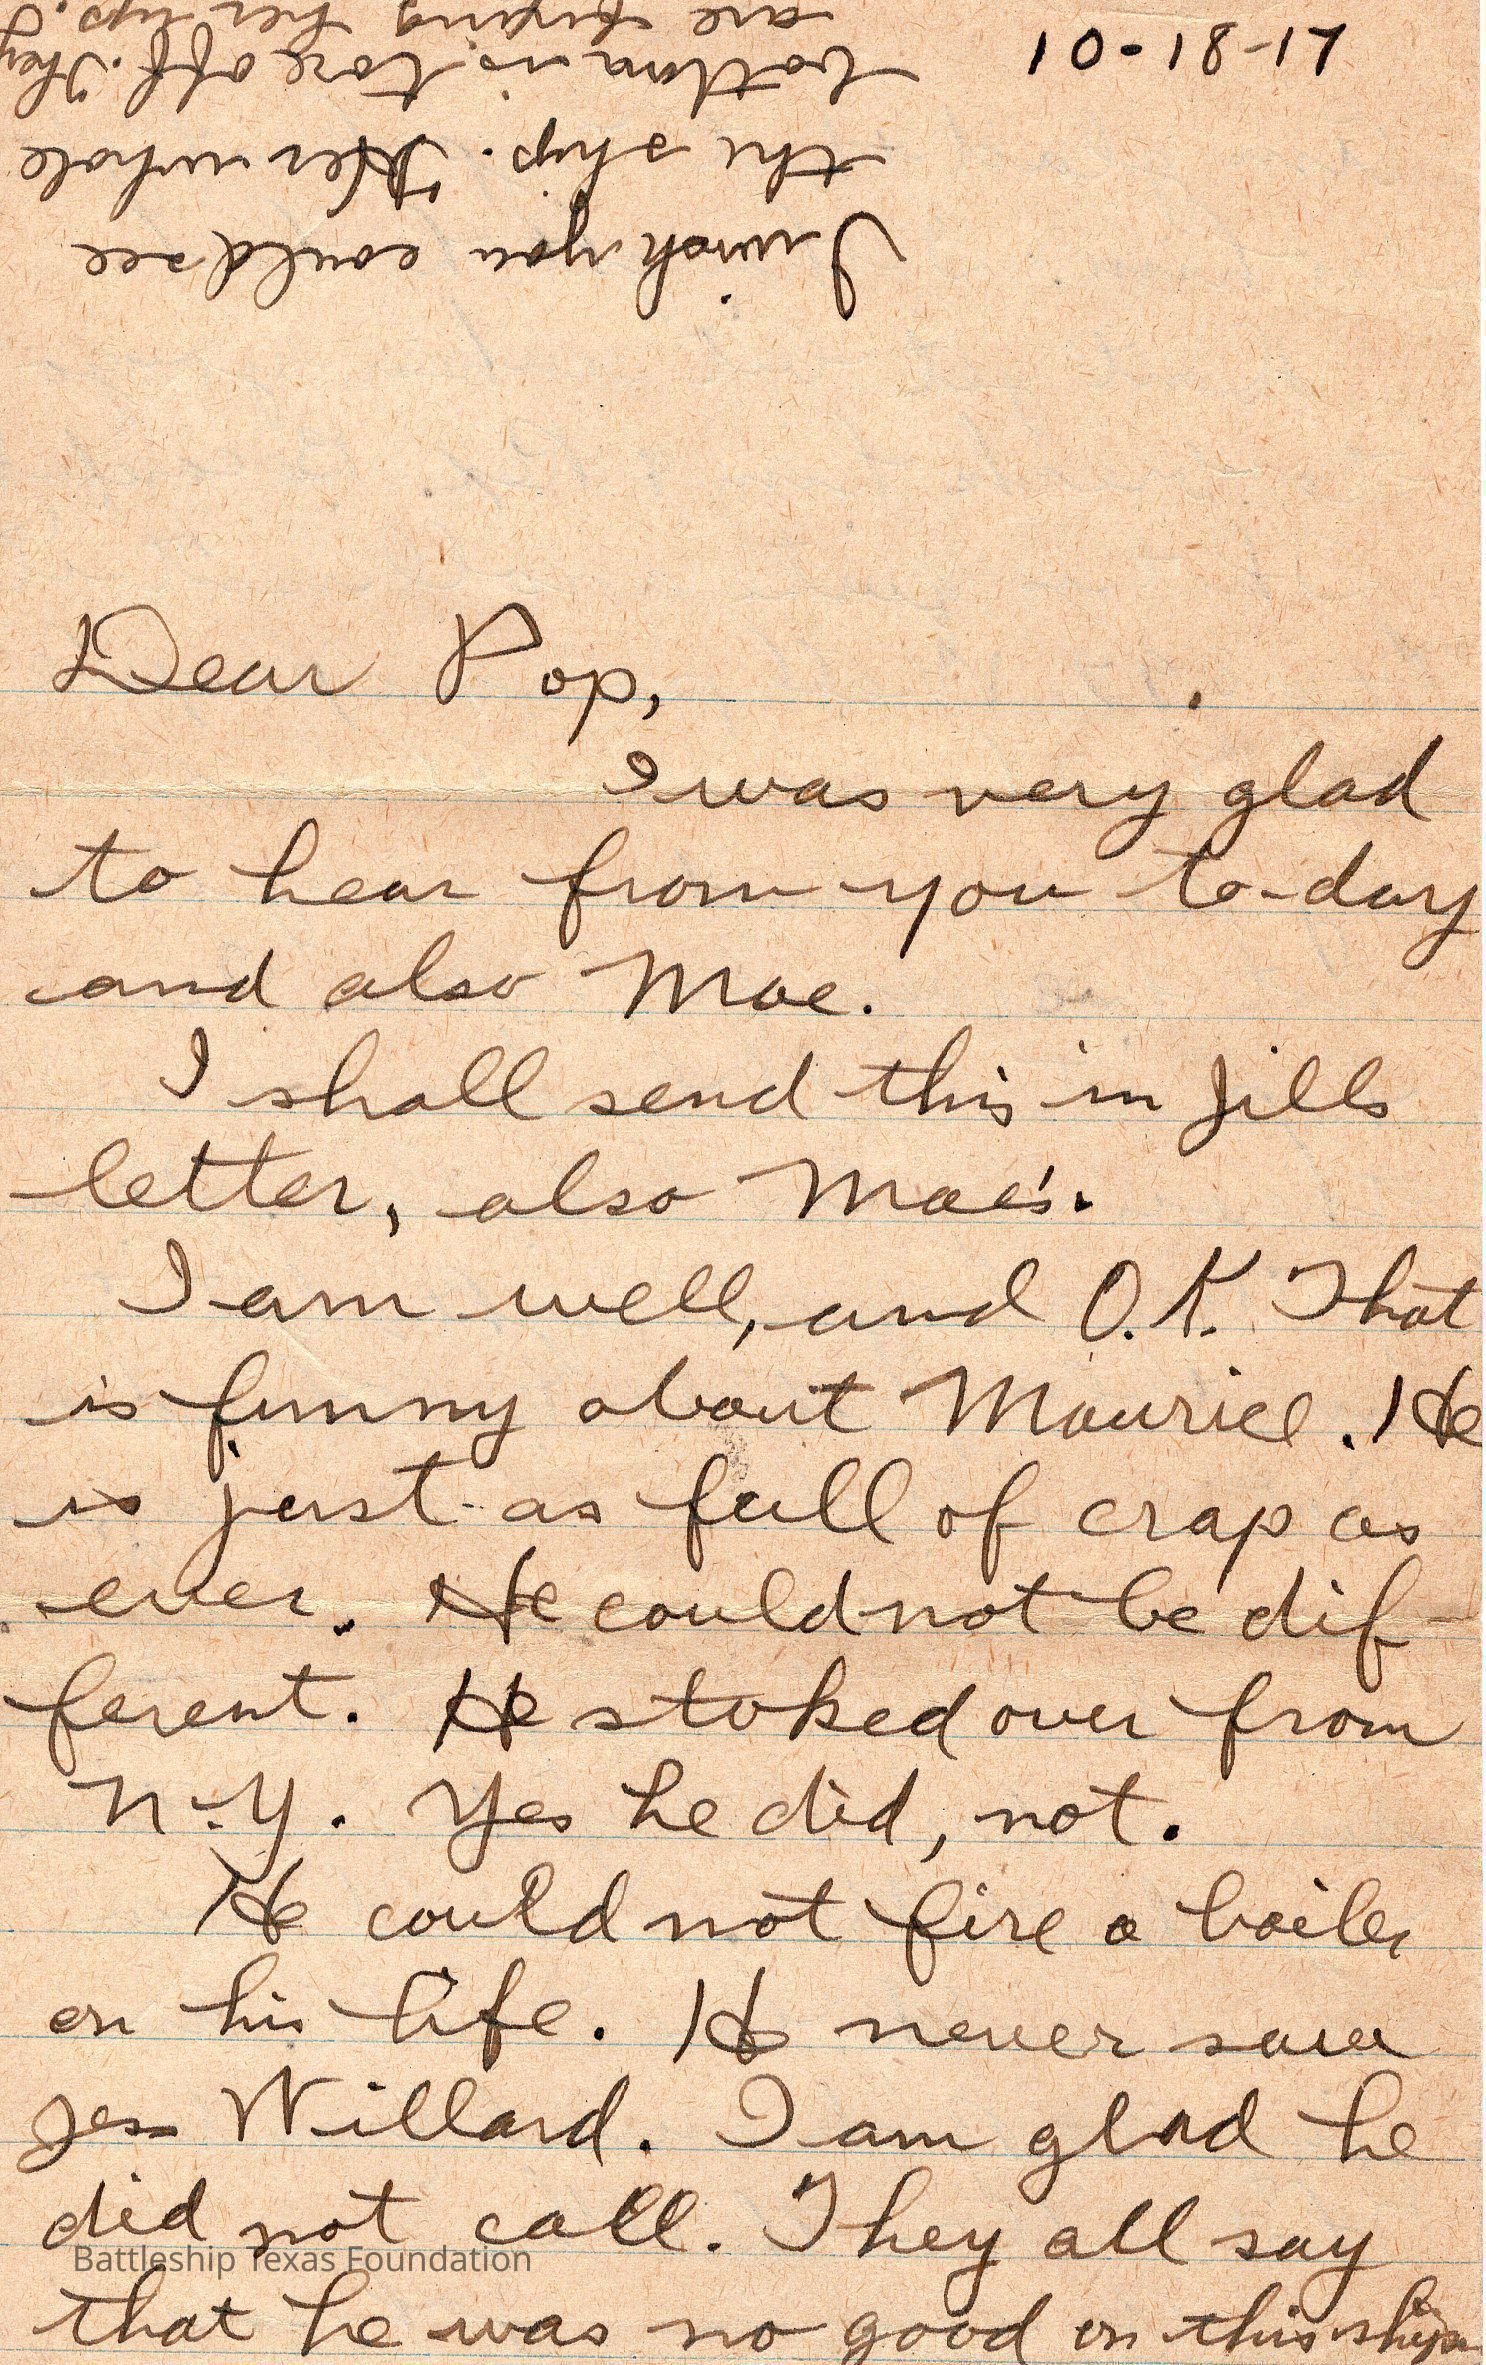 10-18-17
I wish you could see
the ship. Her whole
bottom is tore off. They
are fixing her up.
Dear Pop,
I was very glad
to hear from you to-day
and also Mae.
I shall send this in Jills
letter, also Mae's.
I am well, and O.K. That
is funny about Maurice. He
is just as full of crap as
ever. He could not be dif-
ferent. He stoked over from
N.Y. Yes he did, not.
He could not fire a boiler
on his life. He never saw
Jess Willard. I am glad he
did not call. They all say
Battleship Texas Foundation
that he was no good on this ship